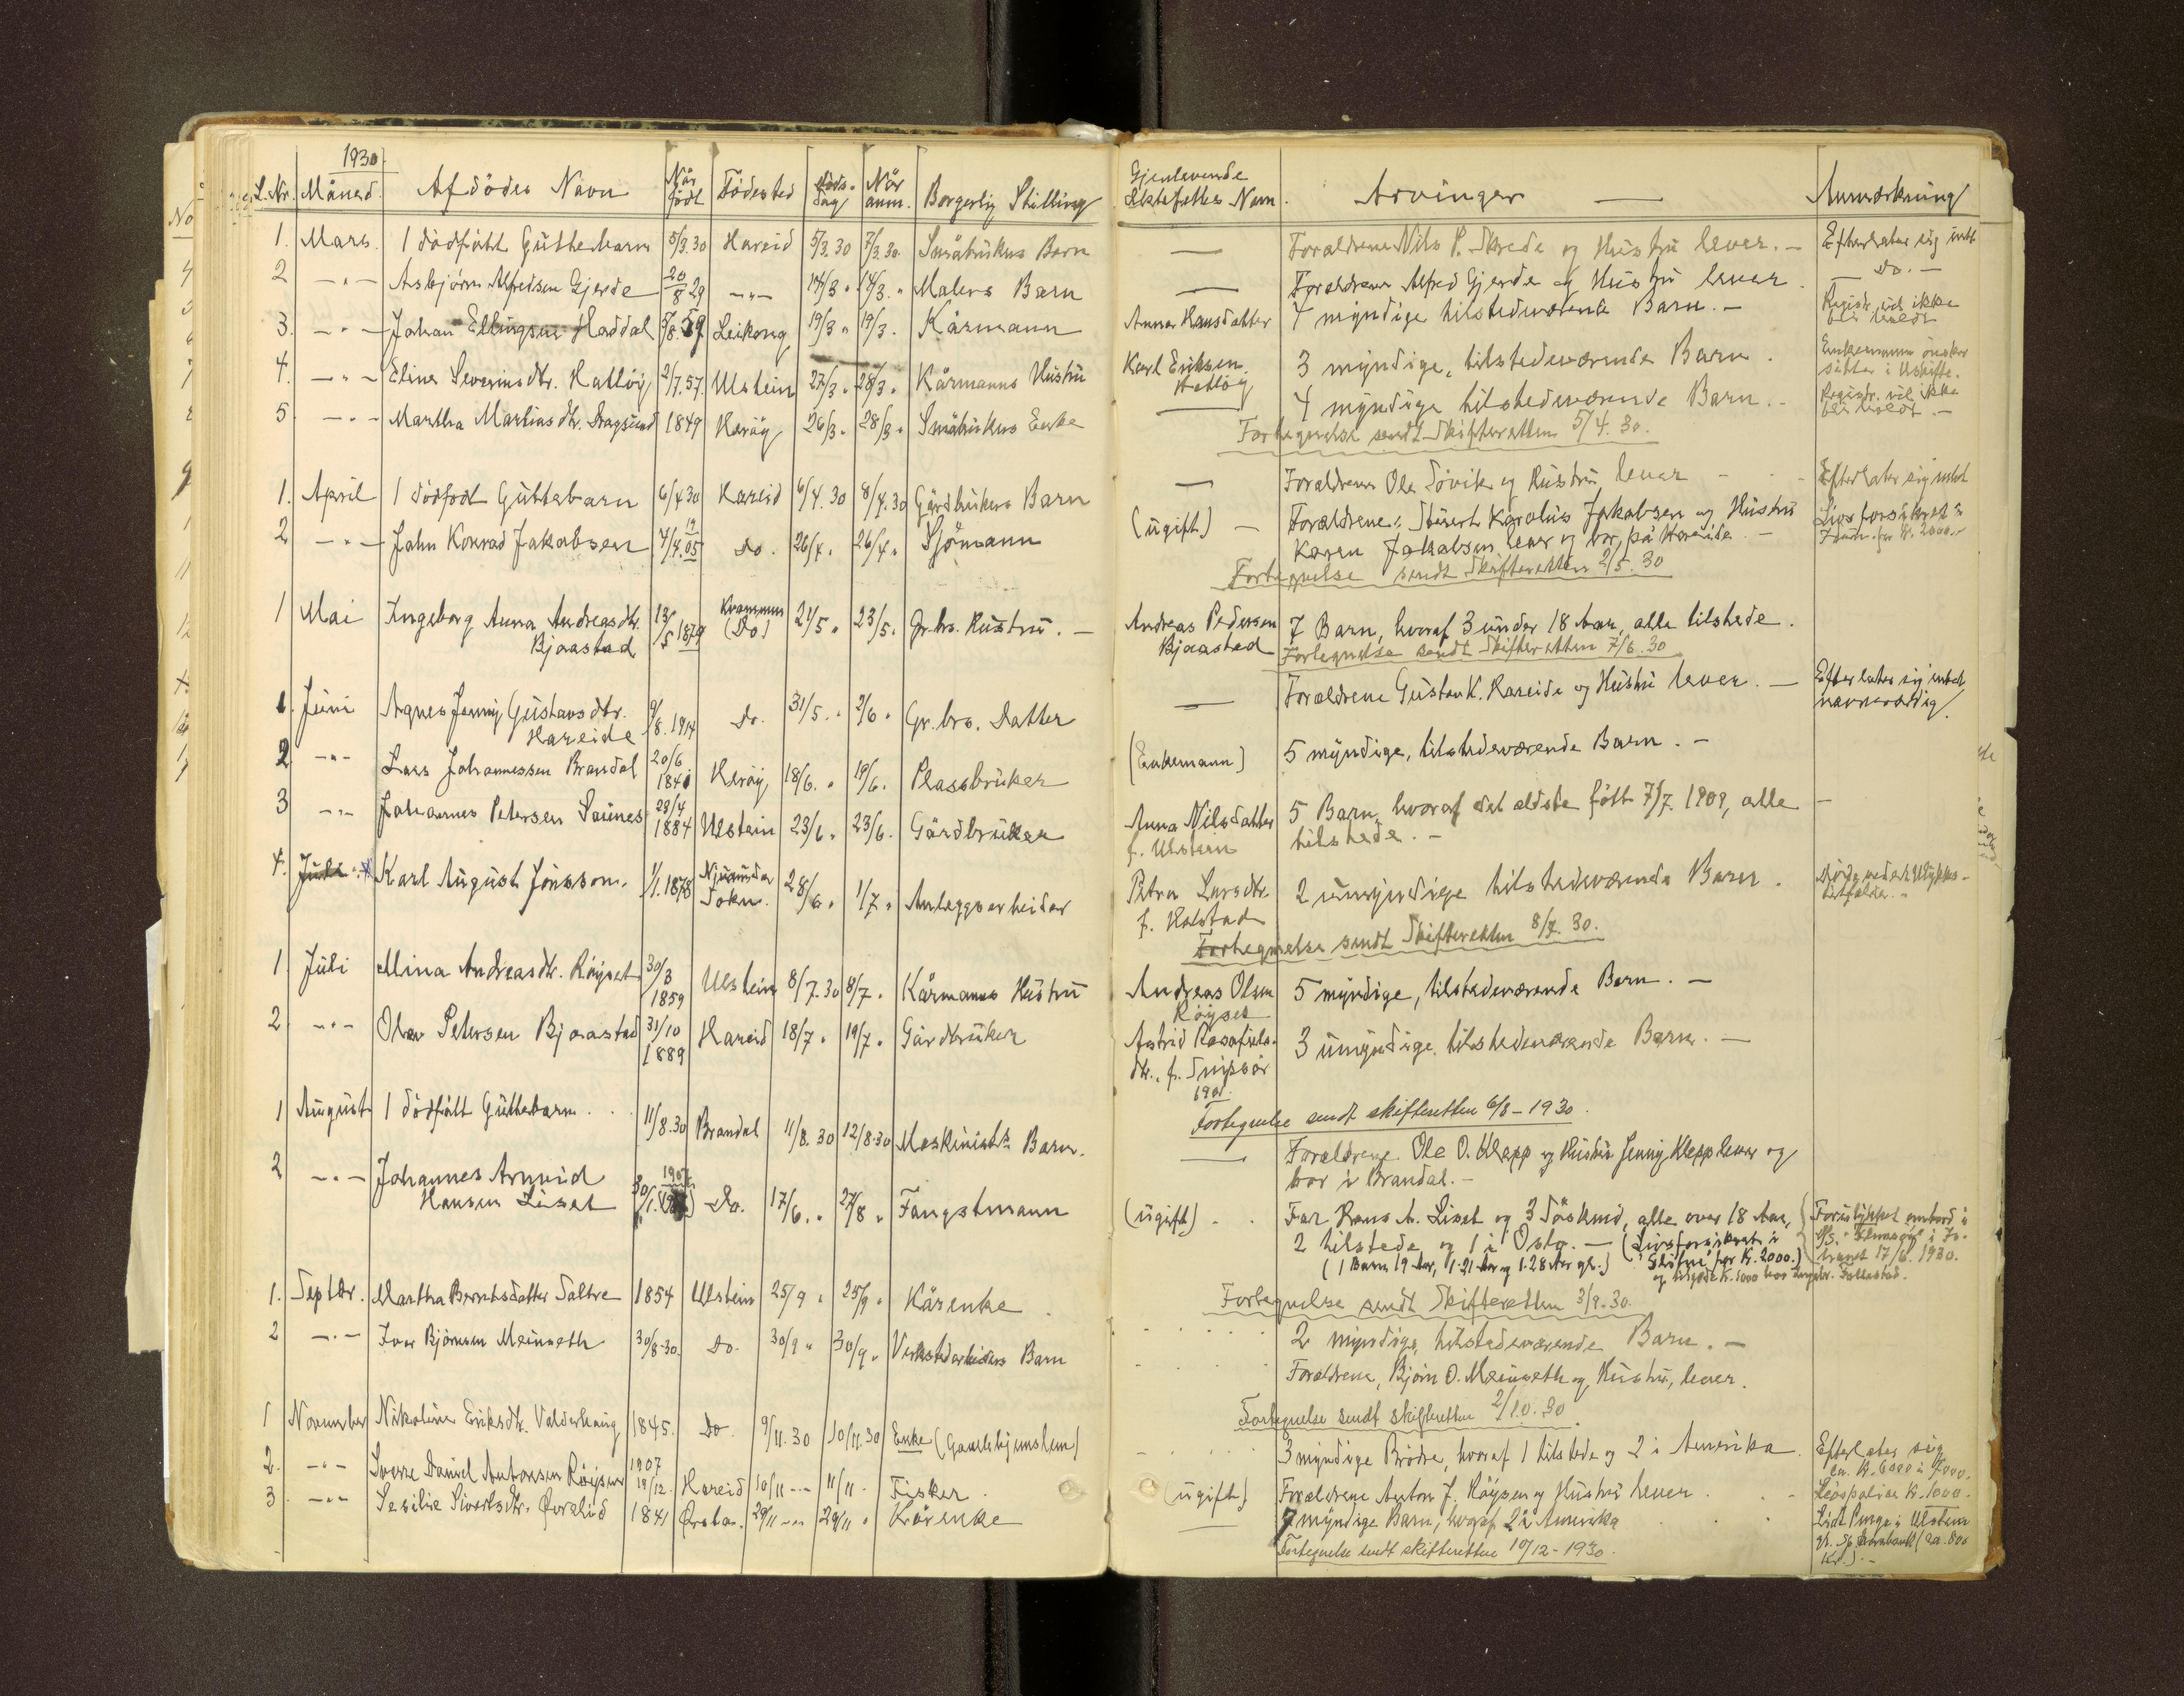 1930
L. Nr. Måned. Afdödes Navn Når födt Födested döds-dag Når anm. Borgerlig Stilling
1. Mars. 1 dödfödt Guttebarn 5/3.30 Hareid 5/3.30 7/3.30. Småbrukers Barn
2 —"— Asbjörn Alfredsen Gjerde 20/8 29 —"— 14/3 " 14/3. " Malers Barn
3. —"— Johan Ellingsen Haddal 5/8.59 Leikong 19/3 " 19/3. Kårmann
4. —"— Eline Severinsdtr. Hatlöy 2/7.57. Ulstein 27/3. " 28/3 " Kårmanns Hustru
5. —"— Martha Martinsdtr. Dragsund 1849 Heröy 26/3. 28/3 " Småbrukers Enke
1. April 1 dödfödt Guttebarn 6/4 30 Hareid 6/4.30 8/4.30 Gårdbrukers Barn
2 —"— John Konrad Jakobsen 7/4. 19 05 Do. 26/4. 26/4 " Sjömann
1 Mai Ingeborg Anna Andreasdtr. 13/5 1879 (Do) 21/5 " 23/5. Gr.br. Hustru. —
Bjaastad
1. Juni Agnes Jenny Gustavsdtr. 9/8.1914 Do. 31/5. " 2/6 " Gr. brs. Datter
Hareide
2. —"— Lars Johannessen Brandal 20/6 1840 Heröy 18/6. " 19/6. Plassbruker
3 —"— Johannes Petersen Saunes 28/4 1884 Ulstein 23/6. 23/6. Gårdbruker
4. Juli Karl August Jonsson. 1/1.1878 28/6 " 1/7 " Anleggsarbeider
1 Juli Mina Andreasdtr. Röyset 30/3 1859 Ulstein 8/7.30 8/7. Kårmanns Hustru
2 —"— Olav Petersen Bjaastad 31/10 1889 Hareid 18/7 " 19/7 " Gårdbruker
1 August 1 dödfödt Guttebarn . . 11/8.30 Brandal 11/8.30 12/8.30 Maskinists Barn.
2 —"— Johannes Arnvid 30/1. Do. 17/6. " 27/8 " Fangstmann
Hansen Liset
1. Septbr. Martha Berntsdatter Saltre 1854 Ulstein 25/9 " 25/9 " Kårenke
2 —"— Ivar Björnsen Meinseth 30/8-30. Do. 30/9 " 30/9 " Verkstedarbeiders Barn
1 November Nikoline Eriksdtr. Valderhaug 1845. Do. 9/11.30 10/11.30 Enke (Gamlehjemslem)
2. —"— Sverre Daniel Antonsen Röyset 1907 19/12. Hareid 10/11 —"— 11/11 " Fisker
3 —"— Sesilie Sivertsdtr. Överlid 1841 Örsta. 29/11 —"— 29/11 " Kårenke
Gjenlevende Ektefelles Navn. Arvinger — Anmerkning
— Foreldrene Nils P. Skrede og Hustru lever. — Efterlater sig intet
— Foreldrene Alfred Gjerde og Hustru lever. — Do. —
Anna Hansdatter 4 myndige tilstedeværende Barn. — Registr. vil ikke
bli holdt
Karl Eriksen 3 myndige, tilstedeværende Barn. Enkemann önsker
Hatlöy sitte i Uskifte.
— 4 myndige tilstedeværende Barn. — Registr. vil ikke
bli holdt —
Fortegnelse sendt Skifteretten 5/4.30.
— Foreldrene Ole Sövik og Hustru lever — Efterlater sig intet
(ugift) — Foreldrene: Stuert Karolius Jakobsen og Hustru Livsforsikret i
Karen Jakobsen lever og bor på Hareide. — Kr. 2000.—
Fortegnelse sendt Skifteretten 2/5.30
Andreas Pedersen 7 Barn, hvoraf 3 under 18 Aar, alle tilstede.
Bjaastad Fortegnelse sendt Skifteretten 7/6.30
— Foreldrene Gustav K. Hareide og Hustru lever. — Efterlater sig intet
nævneverdig.
(Enkemann) 5 myndige, tilstedeværende Barn. —
Anna Nilsdatter 5 Barn, hvoraf det eldste födt 7/7.1909, alle —
f. Ulstein tilstede. —
Petra Larsdtr. 2 umyndige tilstedeværende Barn. Döde ved et Ulykkes-
f. Holstad tilfælde. —
Fortegnelse sendt Skifteretten 8/7.30.
Andreas Olsen 5 myndige, tilstedeværende Barn. —
Röyset
Astrid 3 umyndige tilstedeværende Barn. —
dtr., f. Snipsör
1901.
Fortegnelse sendt skifteretten 6/8-1930.
— Foreldrene Ole O. Klepp og Hustru Jenny Klepp lever og
bor i Brandal. —
(ugift) . . Far Hans A. Liset og 3 Söskend, alle over 18 Aar, Forulykket ombord i
2 tilstede og 1 i Oslo. — (Livsforsikret i
(1 Barn 19 Aar, 1-21 Aar og 1-28 Aar gl.) for Kr. 2000.) 17/6. 1930.
Fortegnelse sendt Skifteretten 3/9.30.
2 myndige, tilstedeværende Barn. —
Foreldrene, Björn O. Meinseth og Hustru, lever.
Fortegnelse sendt skifteretten 2/10.30
3 myndige Brödre, hvoraf 1 tilstede og 2 i Amerika. Efterlater sig
ca. Kr. 6000 à 7000.
(ugift) Foreldrene Anton J. Röyset og Hustru lever. Livspolise Kr. 1000.
— 7 myndige Barn, hvoraf 2 i Amerika Lidt Penge i Ulstein
Fortegnelse sendt skifteretten 10/12-1930. (ca. 800
Kr.). —